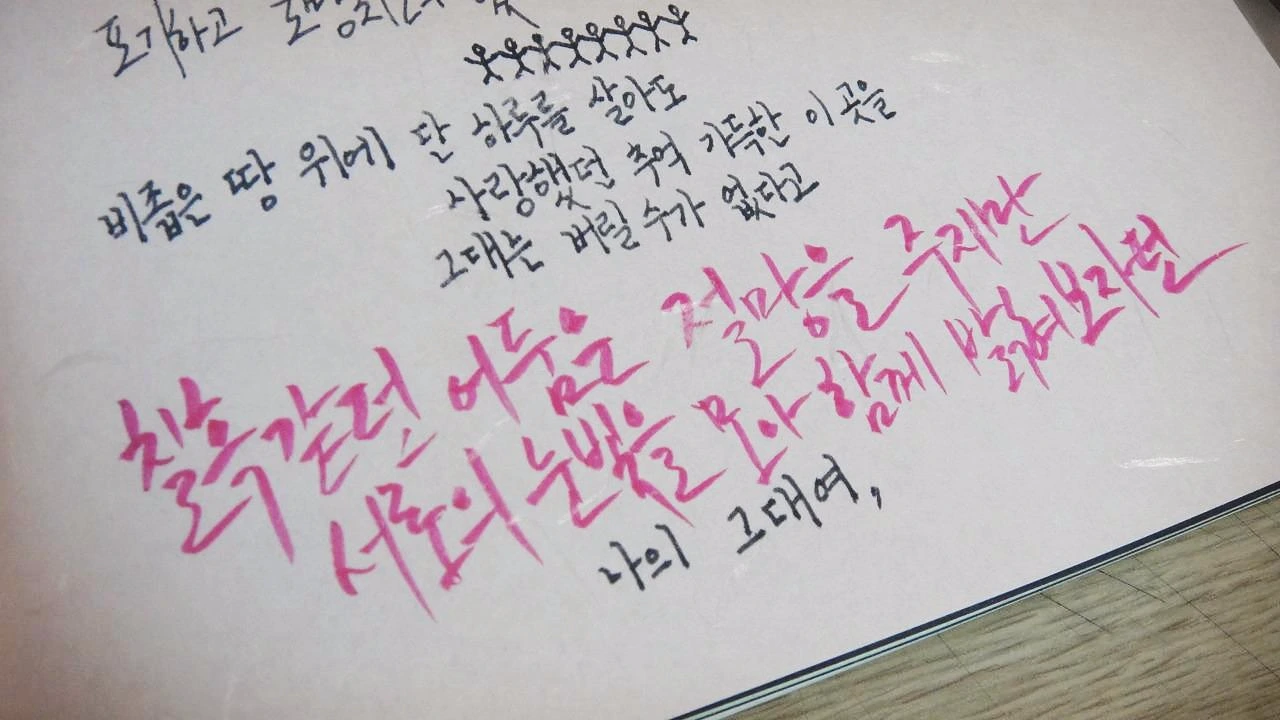 포기하고
비좁은 땅 위에 단 하루를 살아도
사랑했던 추억 가득한 이 곳을
그대는 버릴 수가 없다고
칠흑같던 어둠은 절망을 주지만
서로의 눈빛을 모아 함께 밝혀보자던
나의 그대여,